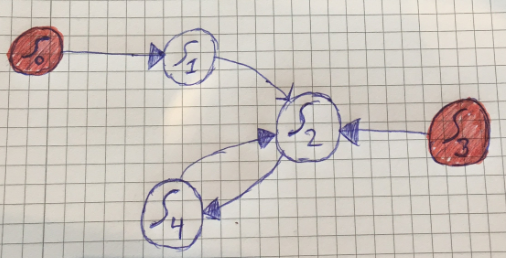 S0
S1
S2
S3
S4